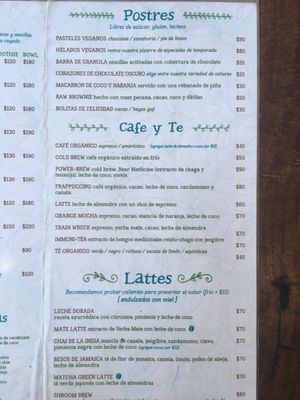 Postres
Libres de azúcar, gluten, lacteos
PASTELES VEGANOS chocolate / zanahoria / pie de limon $90
HELADOS VEGANOS vuestra pizarra de especiales de temporada $80
BARRA DE GRANOLA semillas activadas con cobertura de chocolate $55
CORAZONES DE CHOCOLATE OSCURO elige entre nuestra variedad de sabores $25
MACARRON DE COCO Y NARANJA servido con una rebanada de piña $30
RAW BROWNIE hecho con nuez pecana, cacao, coco y dátiles $50
BOLITAS DE FELICIDAD cacao / hayas goji $30
Cafe y Te
CAFÉ ORGÁNICO espresso / americano (agregue leche de almendra o coco por $5) $45
COLD BREW cafe orgánico extraído en frio $50
POWER-BREW cold brew, Bear Medicine (extracto de chaga y
leche de coco, stevia $85
FRAPPUCCINO café orgánico, cacao, leche de coco, cardamomo y
canela $80
LATTE leche de almendra con un shot de espresso $60
ORANGE MOCHA espresso, cacao, esencia de naranja, leche de coco $70
TRAIN WRECK espresso, yerba mate, cacao, leche de almendra $70
IMMUNI-TEA extracto de hongos medicinales reishi-chaga con jengibre $70
TÉ ORGANICO verde / negro / roibos / zacate de limón / equinácea $40
Lattes
Recomendamos probar calientes para preservar el sabor (frío + $15)
[ endulzados con miel ]
LECHE DORADA $70
receta ayurvédica con cúrcuma, pimienta y leche de coco
MATE LATTE extracto de Yerba Mate con leche de coco $70
CHAI DE LA INDIA mezcla de canela, jengibre, cardamomo, clavo, $70
pimienta negra con leche de coco (agregue cacao por $10)
BESOS DE JAMAICA té de flor de jamaica, canela, limón, polen de abeja, $70
leche de almendra
MATCHA GREEN LATTE $70
té verde japonés con leche de almendras
SHROOM BREW $80
OOTHIE BOWL
$120 $180
$120 $180
$130 $190
$130 $190
$120 $190
$120 $180
$150 $220
$90
$120